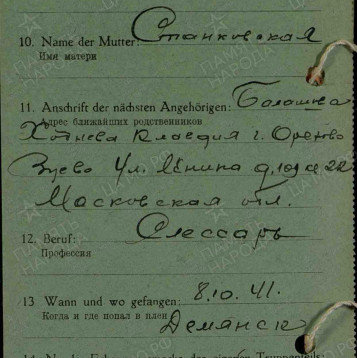 10. Name der Mutter: Станковская
Имя матери
11. Anschrift der nächsten Angehörigen: Балашова
Адрес ближайших родственников
Клавдия г. Орехово
Зуево Ул. Ленина д.
Московская обл.
12. Beruf: Слесарь
Профессия
13 Wann und wo gefangen: 8.10.41.
Когда и где попал в плен Демянск